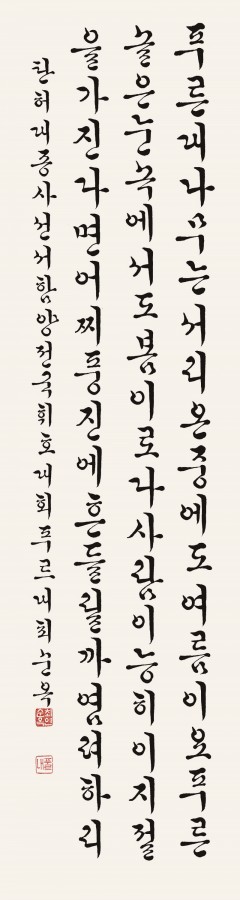 푸른대나무는서리온중에도여름이오푸른
솔은눈속에서도봄이로다사람이능히이지절
을가진다면어찌풍진에흔들릴까염려하리
탄허대종사선서함양전국휘호대회푸르내최순옥